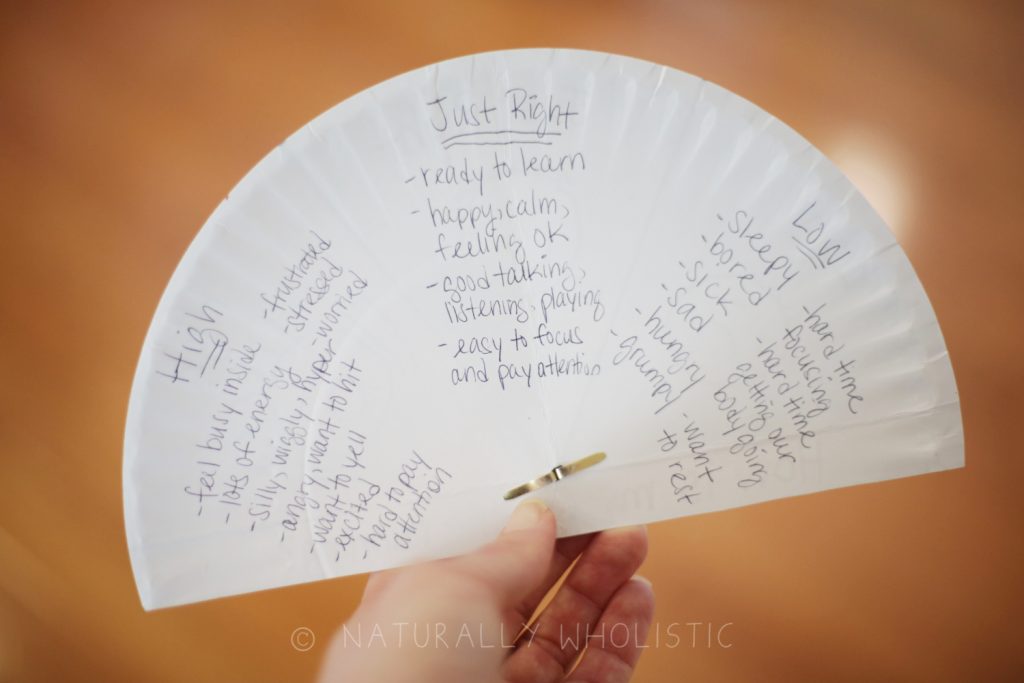 High
- feel busy inside
- lots of energy
- silly, wiggly, hyper
- angry, want to hit
- want to yell
- excited
- hard to pay
attention
- frustrated
- stressed
- worried
Just Right
- ready to learn
- happy, calm,
feeling OK
- good talking,
listening, playing
- easy to focus
and pay attention
Low
- sleepy
- bored
- sick
- sad
- hungry
- grumpy
- hard time
focusing
- hard time
getting our
body going
- want
to rest
© NATURALLY WHOLISTIC